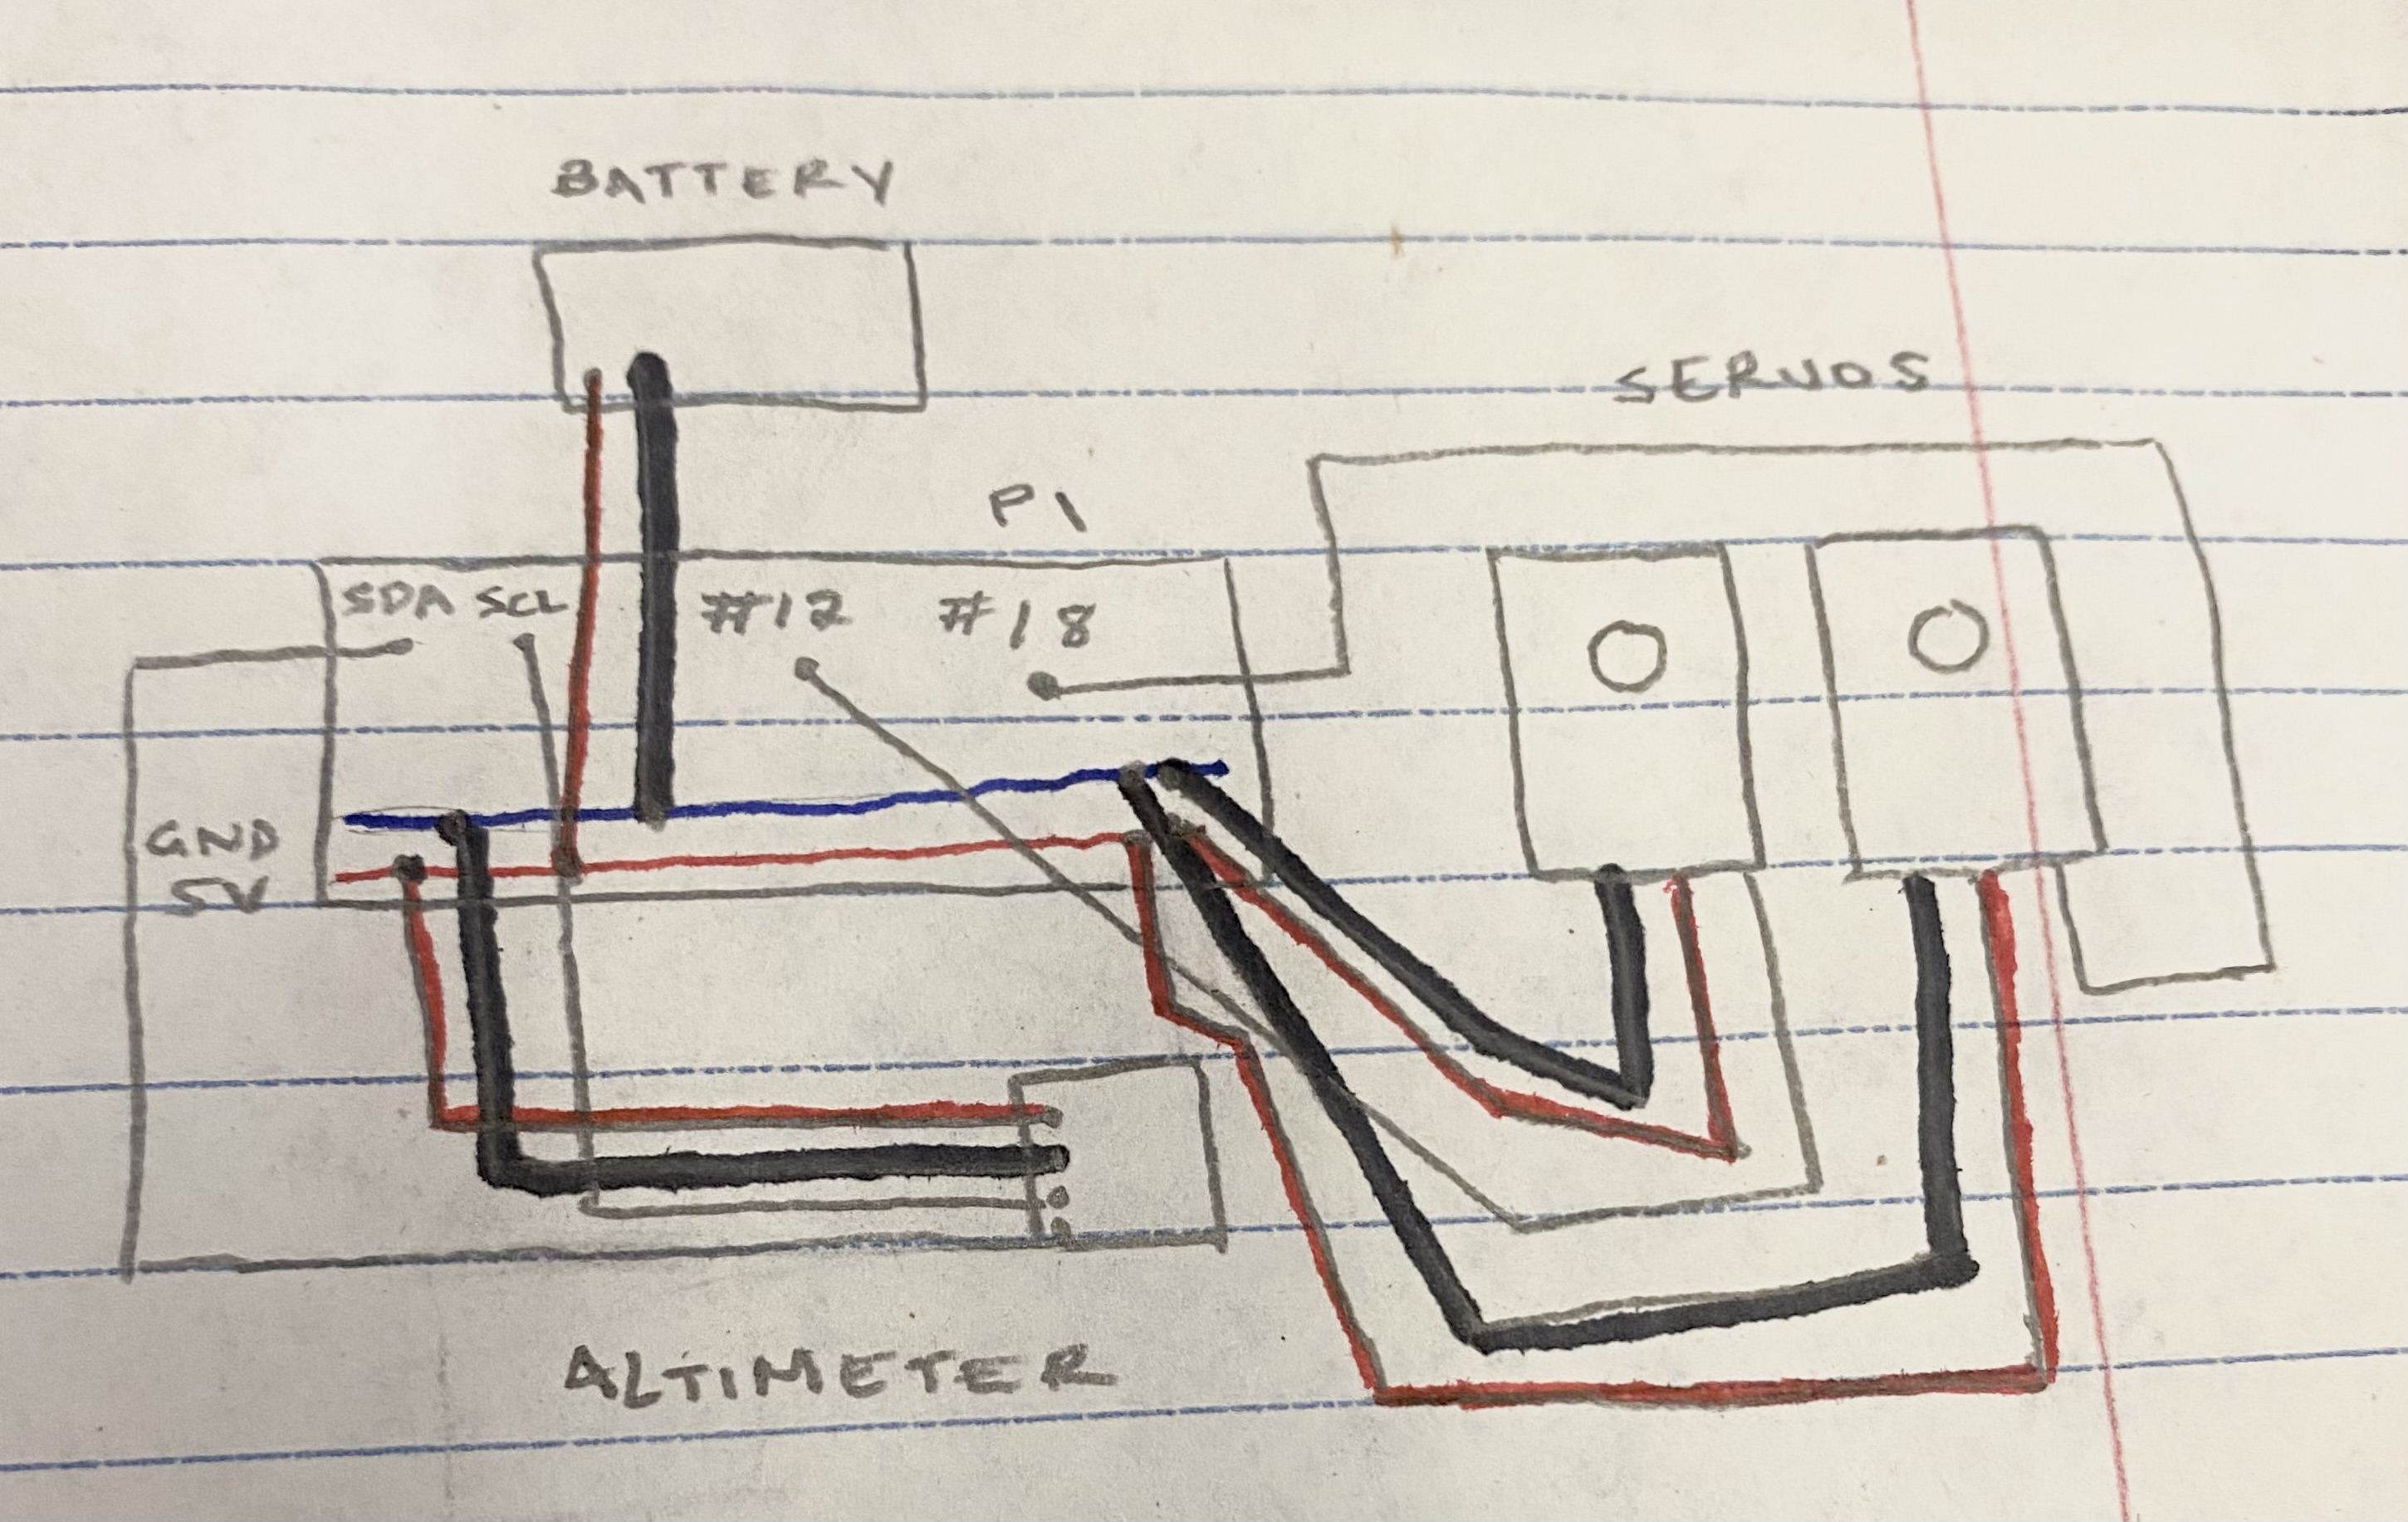 BATTERY
SERVOS
PI
SDA SCL #12 #18
GND
5V
ALTIMETER